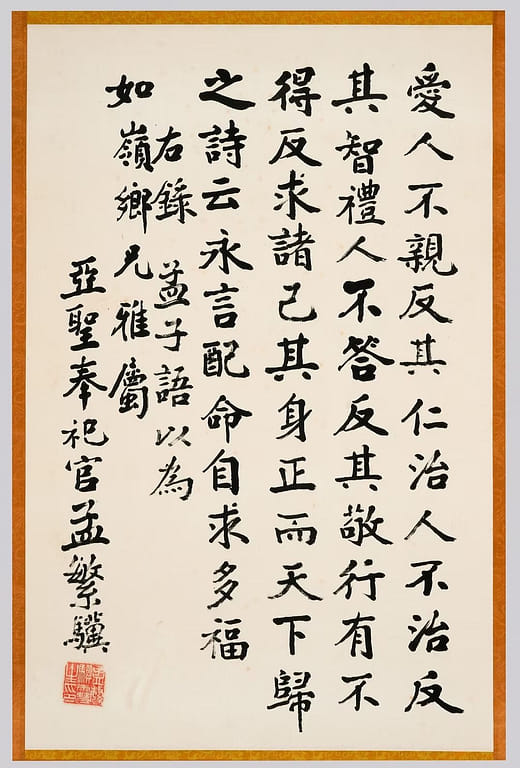 愛人不親反其仁治人不治反
其智禮人不答反其敬行有不
得反求諸己其身正而天下歸
之詩云永言配命自求多福
右錄孟子語以為
如嶺鄉兄雅屬
亞聖奉祀官孟繁驥